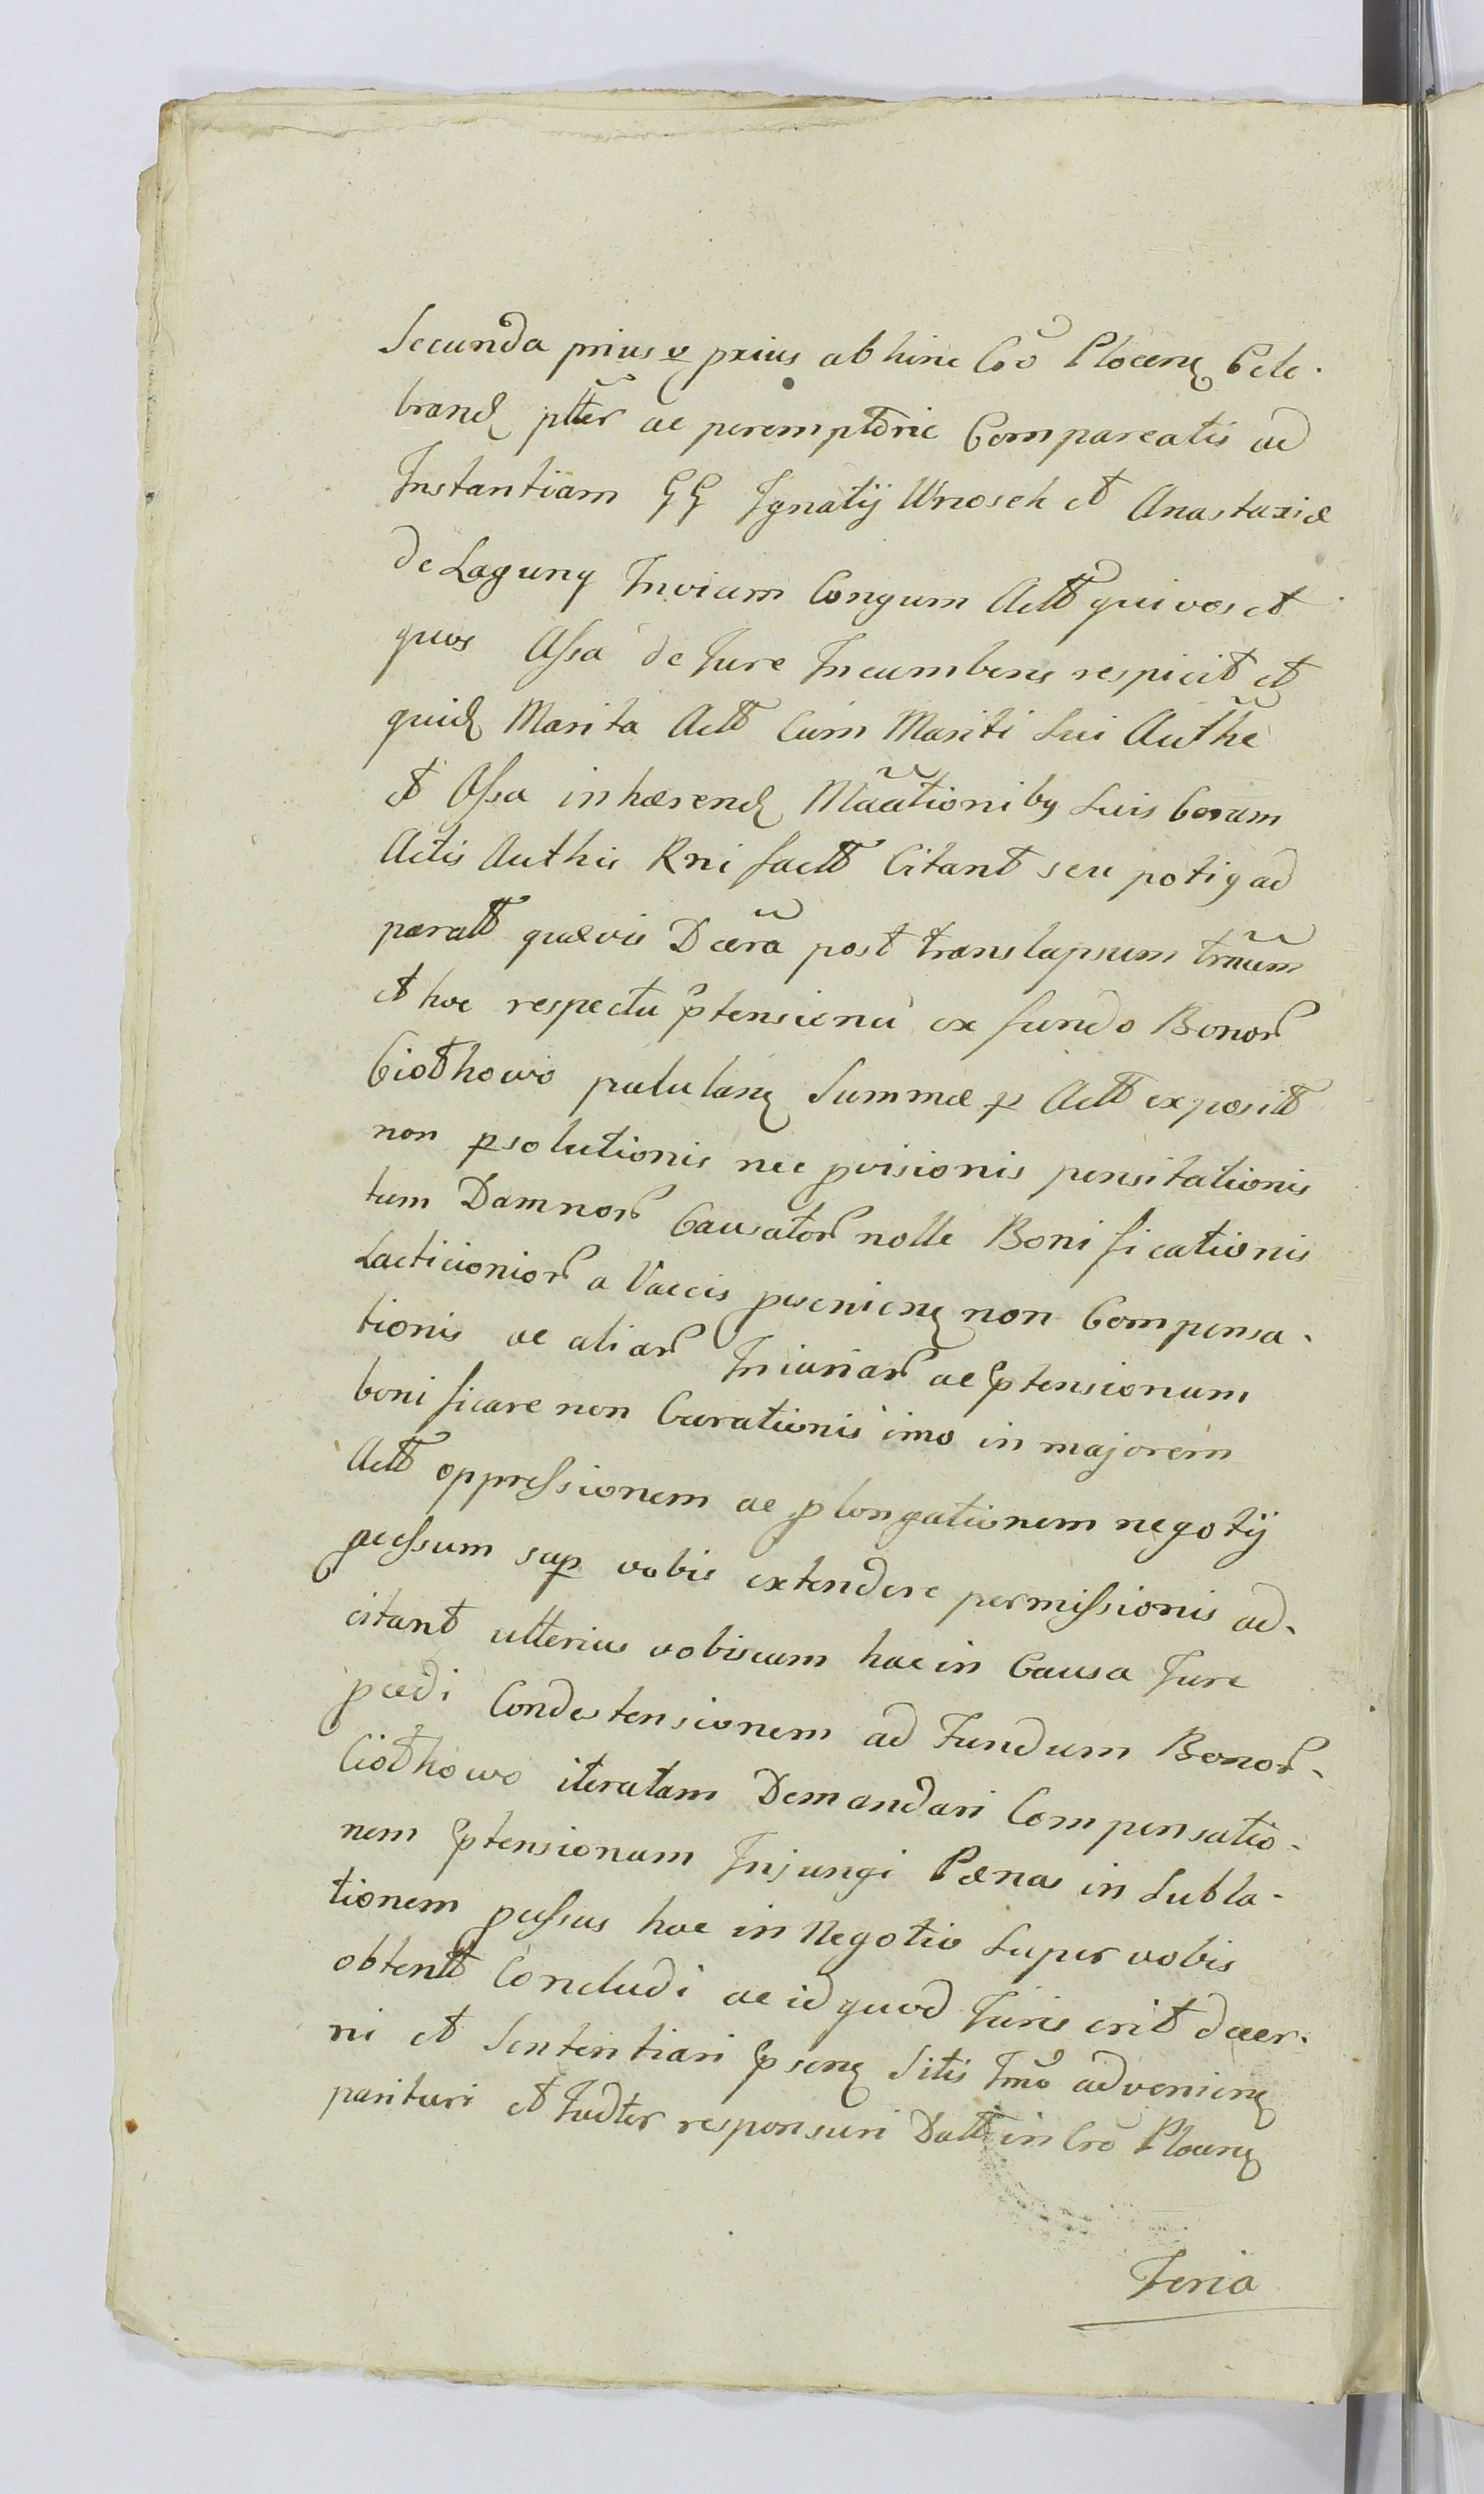 Secunda prius q̃ prius ab hinc Crõ Plocen̄ Cele-
brand̄ pltĕr ac peremptŏrie Compareatis ad
Instantiam GG Ignatij Wnosek et Anastaxiæ
de Laguny Invicem Congum Actt qui vos et
quos Assa de Jure Incumbens respicit et
quid̄ Marita Actt Cum Mariti Sui Authe
et Assa inhærend̄ Mãationiby Suis Coram
Actis Authis Rni factt Citant seu potiy ad
paratt quævis Dcĕra post translapsum trãum
et hoc respectu p̄tensionū ex fundo Bonor̄
Ciotkowo palulan̄ Summæ p Actt expositt
non psolutionis nec pvisionis pensitationis
tum Damnor̄ Causator̄ nolle Bonificationis
Lacticionior̄ a Vaccis pvenien̄ non Compensa-
tionis ac aliar̄ Iniuriar̄ ac p̄tensionum
bonificare non Curationis imo in majorem
Actt oppressionem ac plongationem negotij
pcessum sup vobis extendere permissionis ad-
citant ulterius vobiscum hac in Causa Jure
pcedi Condestensionem ad Fundum Bonor̄-
Ciotkowo iteratam Demandari Compensatio-
nem p̄tensionum Injungi Pænas in Subla-
tionem pcessus hoc in Negotio Super vobis
obtentt Concludi ac id quod Juris erit decer-
ni et Sententiari p̄sen̄ Sitis Tmõ advenien̄
parituri et Judter responsuri Datt in Crõ Plocen̄
Feria